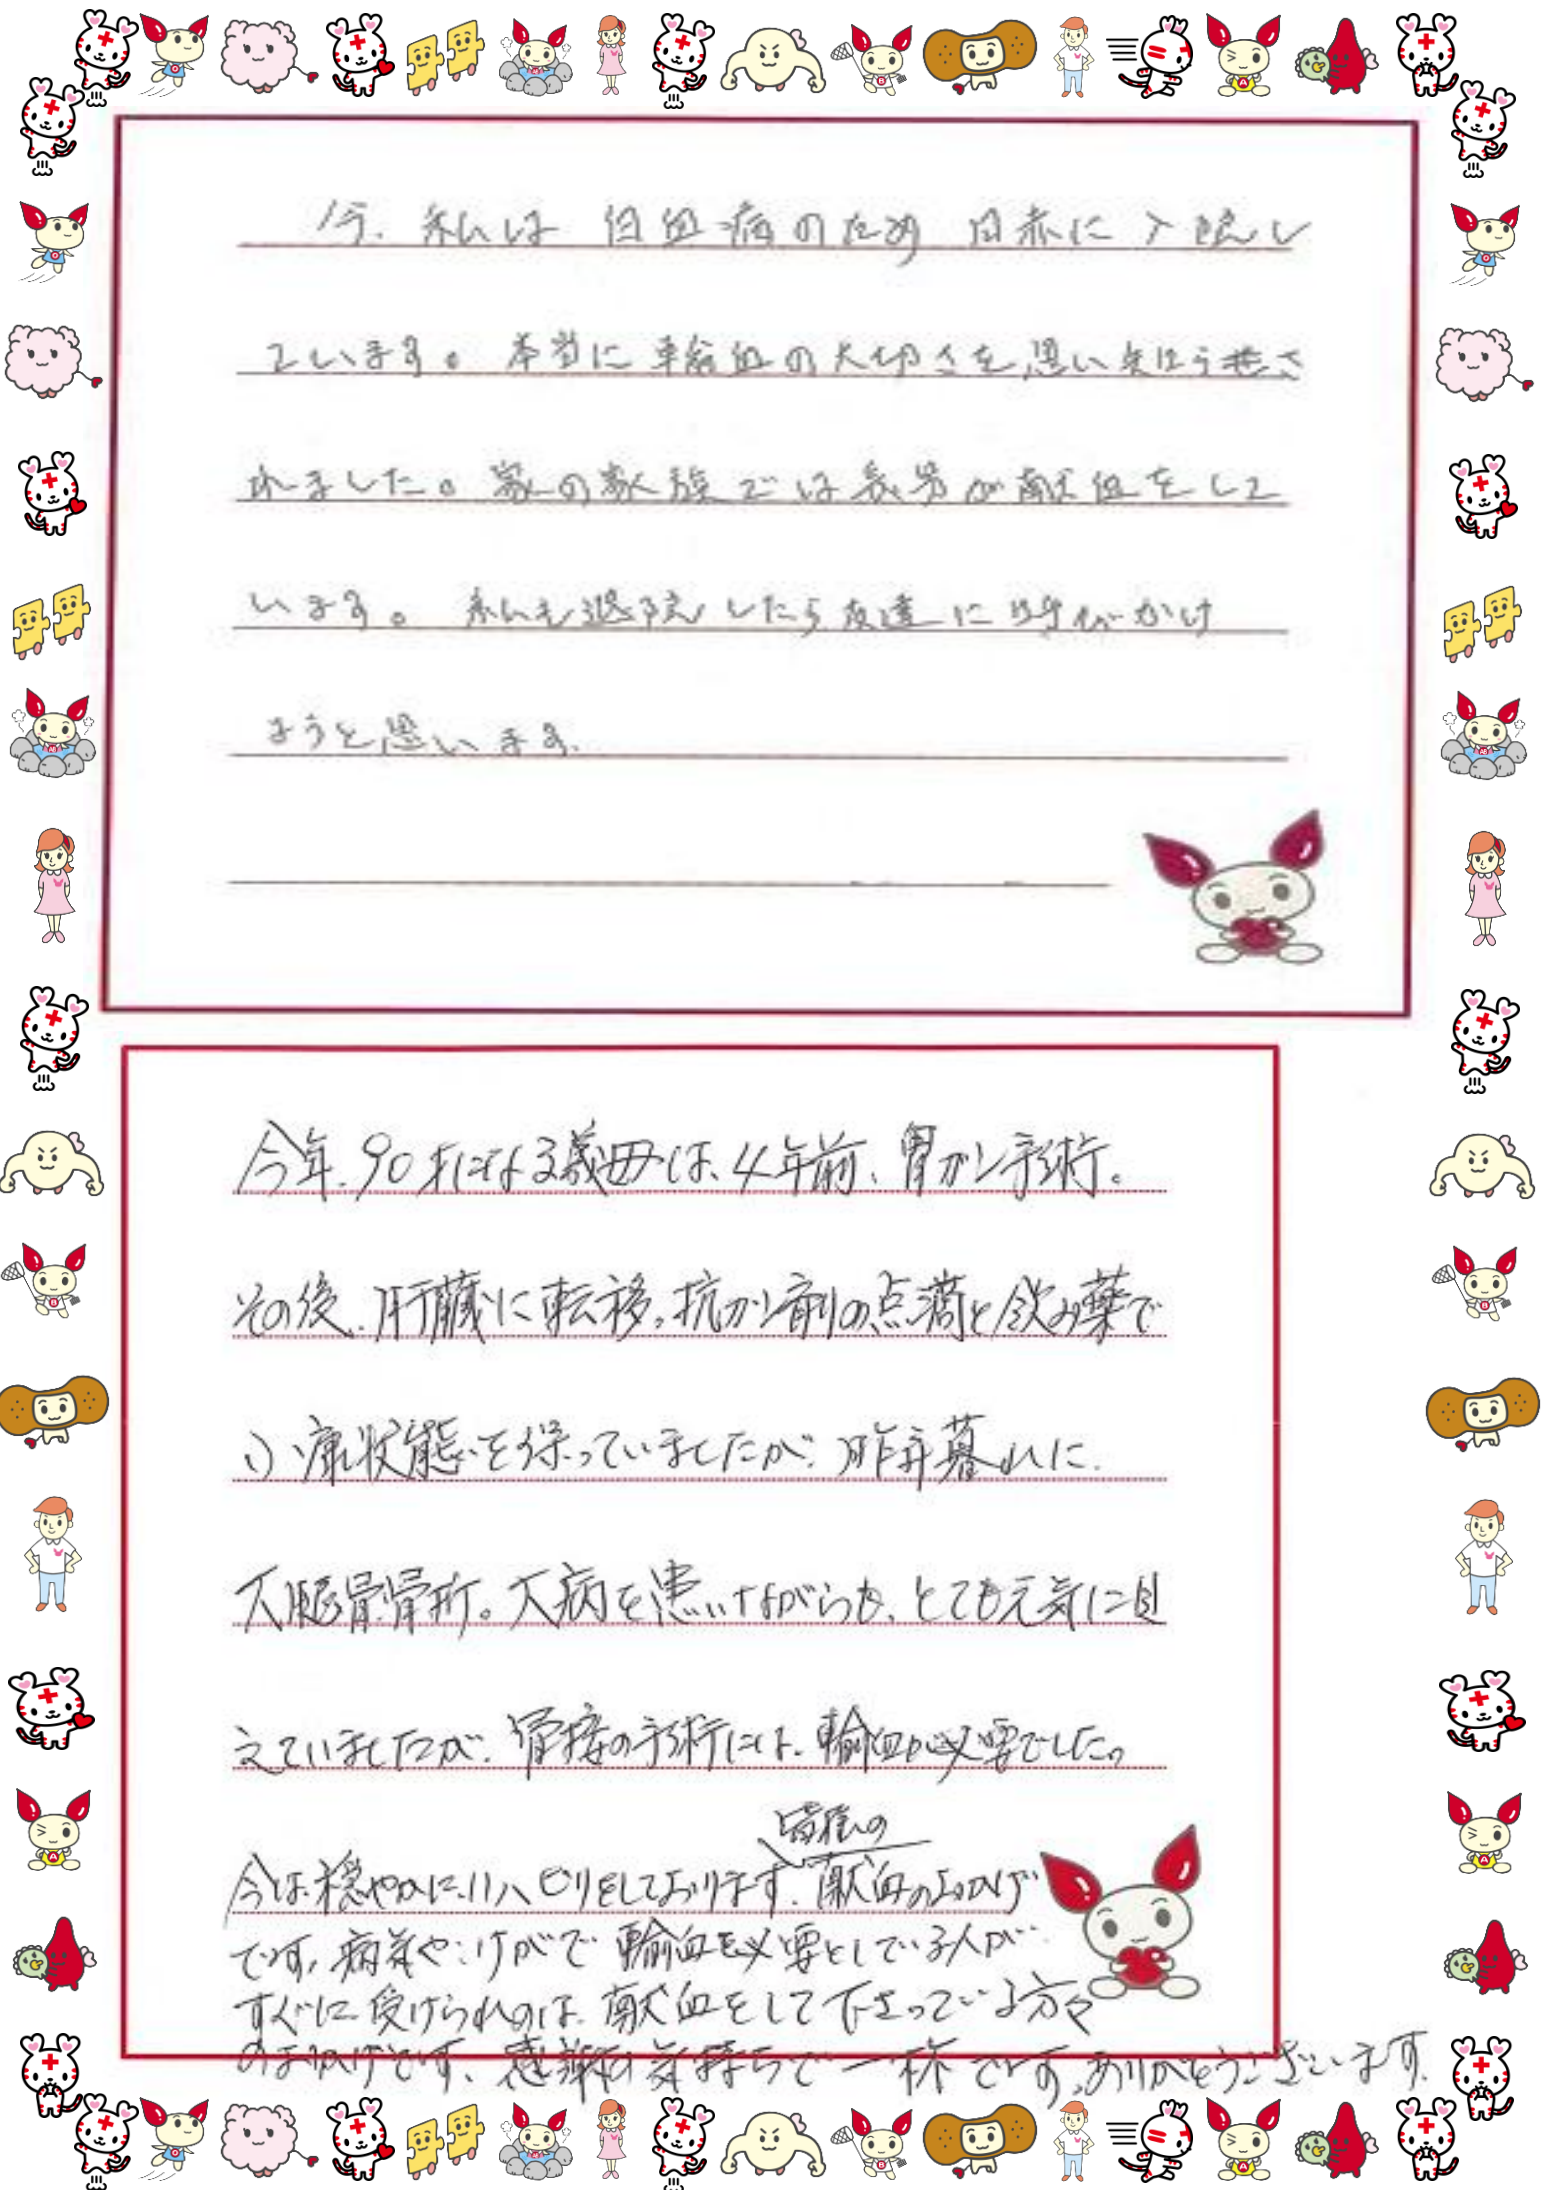 今、私は白血病のため日赤に入院し
ています。本当に輸血の大切さを思い知らせさ
れました。家の家族では長男が献血をして
います。私も退院したら友達に呼びかけ
ようと思います。
今年、90才になる義母は、4年前、胃ガン手術。
その後、肝臓に転移。抗ガン剤の点滴と飲み薬で
いい状態を保っていましたが、昨年暮れに、
大腿骨骨折。大病を患いながらも、とても元気に見
えていましたが、骨接の手術には、輸血が必要でした。
皆様の
今は、穏やかにリハビリをしております。献血のおかげ
です。病気や、けがで輸血を必要としている人が、
すぐに受けられのは、献血をして下さっている方々
のおかげです。感謝の気持ちで一杯です。ありがとうございます。